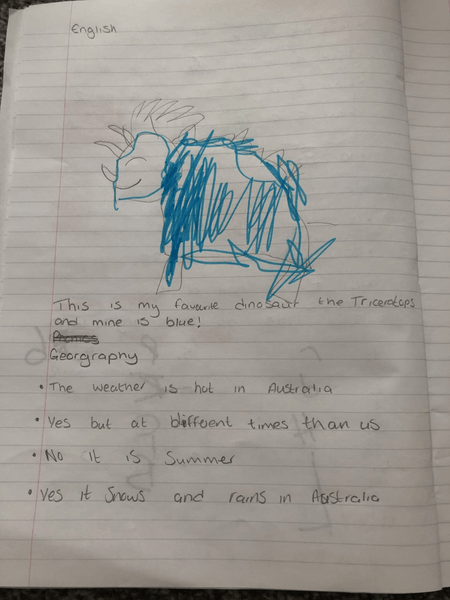 English
This is my favourite dinosaur the Triceratops
and mine is blue!
Georgraphy
• The weather is hot in Australia
• Yes but at different times than us
• No It is Summer
• Yes it Snows and rains in Australia